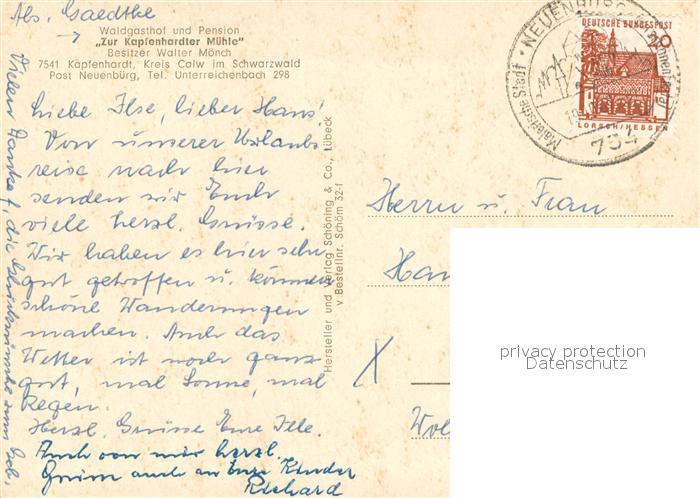 Abs. Gaedtke
→ Waldgasthof und Pension
„Zur Kapfenhardter Mühle"
Besitzer Walter Mönch
7541 Kapfenhardt, Kreis Calw im Schwarzwald
Post Neuenbürg, Tel. Unterreichenbach 298
Liebe Ilse, lieber Hans!
Von unserer Urlaubs
reise nach hier
senden wir Euch
viele herzl. Grüsse.
Wir haben es hier sehr
gut getroffen u. können
schöne Wanderungen
machen. Auch das
Wetter ist noch ganz
gut, mal Sonne, mal
Regen.
Herzl. Grüsse Eure Ille.
Auch von mir herzl.
Gruss auch an Eure Kinder
Richard
Vielen Dank f. die Glückwünsche zum Geb.
Hersteller und Verlag Schöning & Co., Lübeck
v Bestellnr. Schöm 32-1
NEUENBÜRG
Malerische Stadt
754
DEUTSCHE BUNDESPOST
20
LORSCH/HESSEN
Herrn u. Frau
Han
X
Wol
privacy protection
Datenschutz